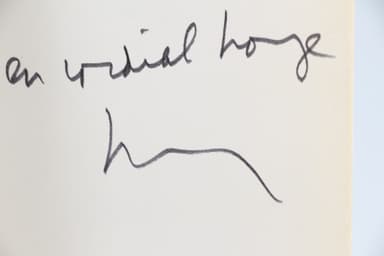 en cordial homage